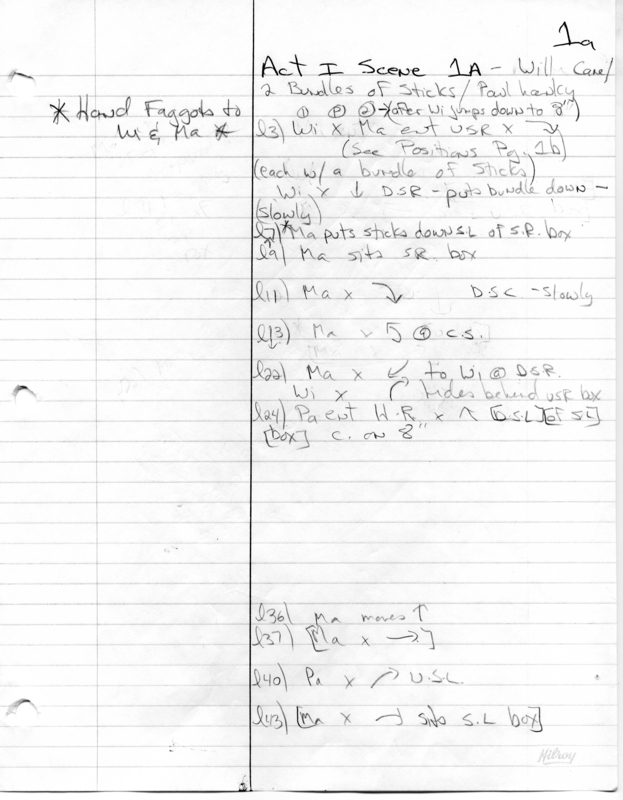 1a
Act I Scene 1A - Will Care/
2 Bundles of Sticks / Paul Hawley
* Hand Faggots to
Wi & Ma *
① ② ② → after Wi jumps down to 8")
l3) Wi x, Ma ent USR x
(See Positions Pg. 1b)
(each w/ a bundle of sticks)
Wi x ↓ DSR - puts bundle down -
(slowly)
l7) * Ma puts sticks down S.L of S.R. box
l9) Ma sits S.R. box
l11) Ma x D.S.C. - slowly
l13) Ma @ C.S.
l22) Ma x ↙ to Wi @ DSR.
Wi x hides behind USR box
l24) Pa ent H.R x ↑ [D.S.L] [of SL]
[box] C. on 8"
l36) Ma moves ↑
l37) [Ma x →]
l40) Pa x ↗ U.S.L.
l43) [Ma x → sits S.L box]
Hilroy